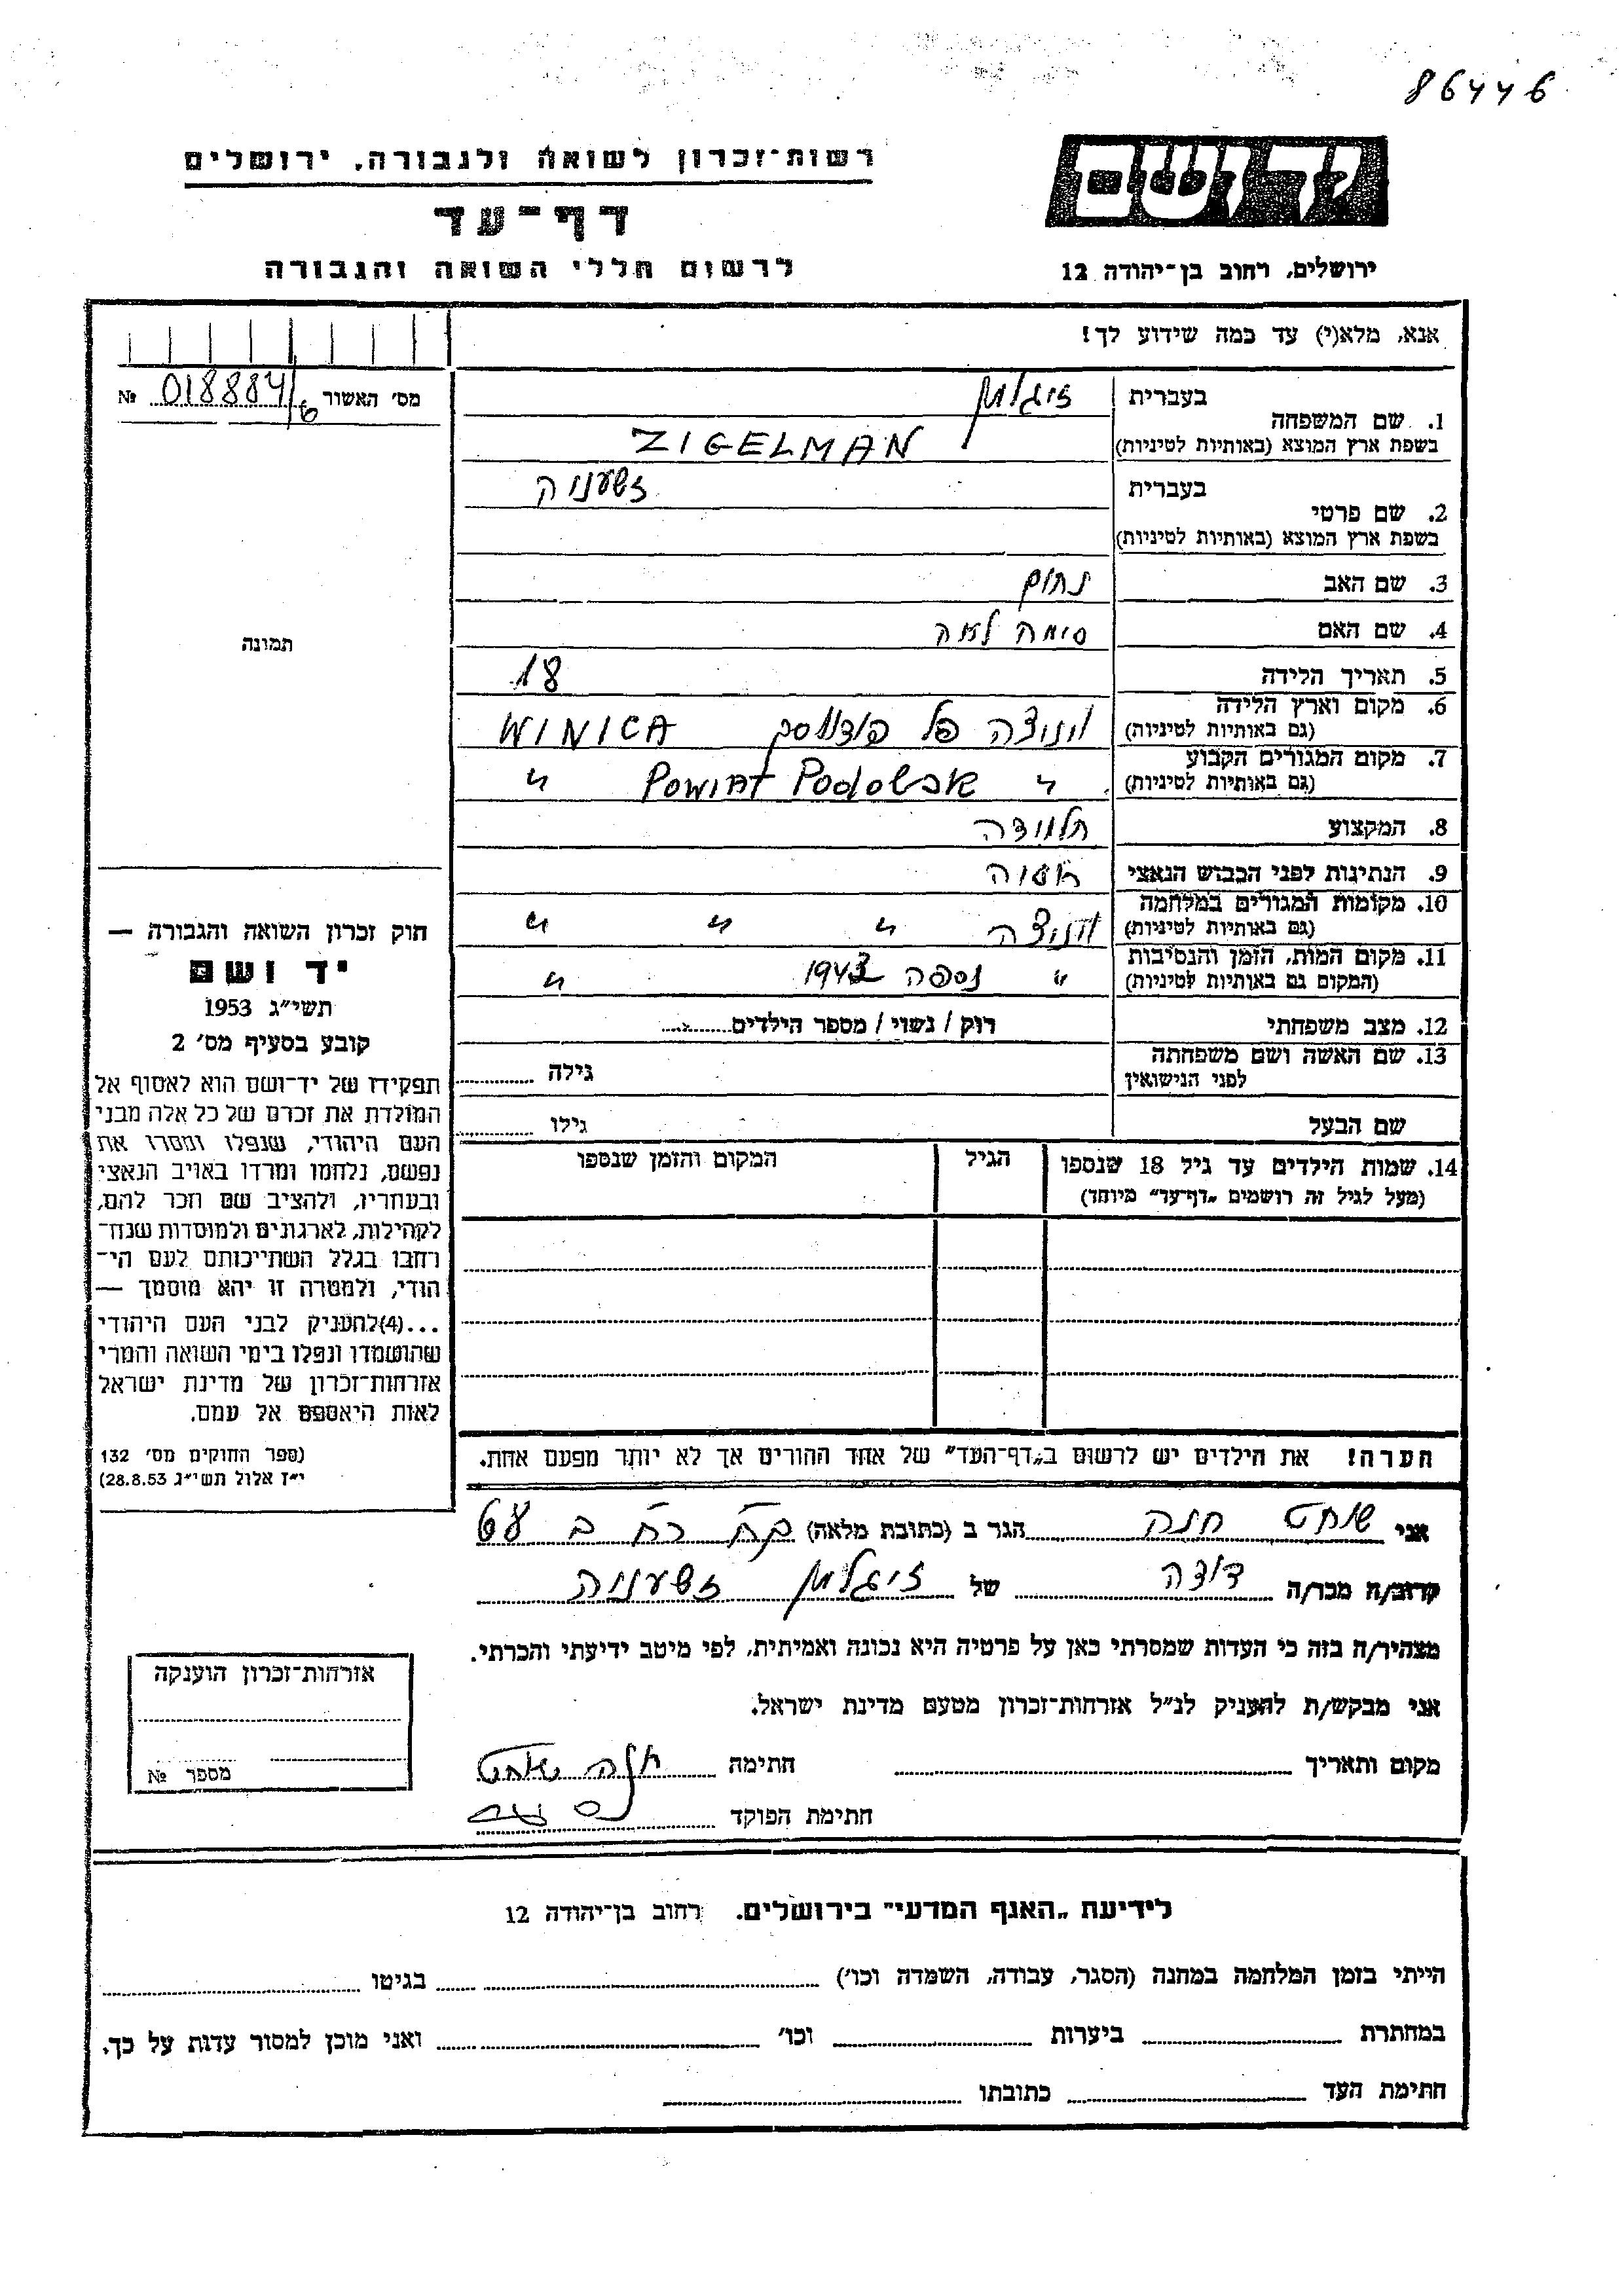 86446
יד ושם
רשות־זכרון לשואה ולגבורה, ירושלים
דף־עד
ירושלים, רחוב בן־יהודה 12
לרשום חללי השואה והגבורה
אנא, מלא(י) עד כמה שידוע לך!
מס׳ האשור № 018884/6
1. שם המשפחה
בעברית זיגלמן
בשפת ארץ המוצא (באותיות לטיניות) ZIGELMAN
2. שם פרטי
בעברית
בשפת ארץ המוצא (באותיות לטיניות)
3. שם האב נחום
4. שם האם סימה לאה
5. תאריך הלידה 18
6. מקום וארץ הלידה וינוצה WINICA
(גם באותיות לטיניות)
7. מקום המגורים הקבוע " Powiat Podolska "
(גם באותיות לטיניות)
8. המקצוע תלמידה
9. הנתינות לפני הכבוש הנאצי
10. מקומות המגורים במלחמה וינוצה " " "
(גם באותיות לטיניות)
11. מקום המות, הזמן והנסיבות " נספה 1943 "
(המקום גם באותיות לטיניות)
12. מצב משפחתי רווק / נשוי / מספר הילדים
13. שם האשה ושם משפחתה
לפני הנישואין גילה
שם הבעל גילו
14. שמות הילדים עד גיל 18 שנספו
(מעל לגיל זה רושמים „דף־עד” מיוחד)
הגיל
המקום והזמן שנספו
הערה! את הילדים יש לרשום ב„דף־העד” של אחד ההורים אך לא יותר מפעם אחת.
תמונה
חוק זכרון השואה והגבורה —
יד ושם
תשי״ג 1953
קובע בסעיף מס׳ 2
תפקידו של יד־ושם הוא לאסוף אל
המולדת את זכרם של כל אלה מבני
העם היהודי, שנפלו ומסרו את
נפשם, נלחמו ומרדו באויב הנאצי
ובעוזריו, ולהציב שם וזכר להם,
לקהילות, לארגונים ולמוסדות שנח־
רחבו בגלל השתייכותם לעם הי־
הודי, ולמטרה זו יהא מוסמך —
...(4)להעניק לבני העם היהודי
שהושמדו ונפלו בימי השואה והמרי
אזרחות־זכרון של מדינת ישראל
לאות היאספם אל עמם.
(ספר החוקים מס׳ 132
י״ז אלול תשי״ג 28.8.53)
אני שוחט חנה הגר ב (כתובת מלאה)
קרוב/ה מכר/ה דודה של זיגלמן
מצהיר/ה בזה כי העדות שמסרתי כאן על פרטיה היא נכונה ואמיתית, לפי מיטב ידיעתי והכרתי.
אני מבקש/ת להעניק לנ״ל אזרחות־זכרון מטעם מדינת ישראל.
מקום ותאריך חתימה חנה שוחט
חתימת הפוקד
אזרחות־זכרון הוענקה
מספר №
לידיעת „האגף המדעי” בירושלים. רחוב בן־יהודה 12
הייתי בזמן המלחמה במחנה (הסגר, עבודה, השמדה וכו׳) בגיטו
במחתרת ביערות וכו׳ ואני מוכן למסור עדות על כך.
חתימת העד כתובתו